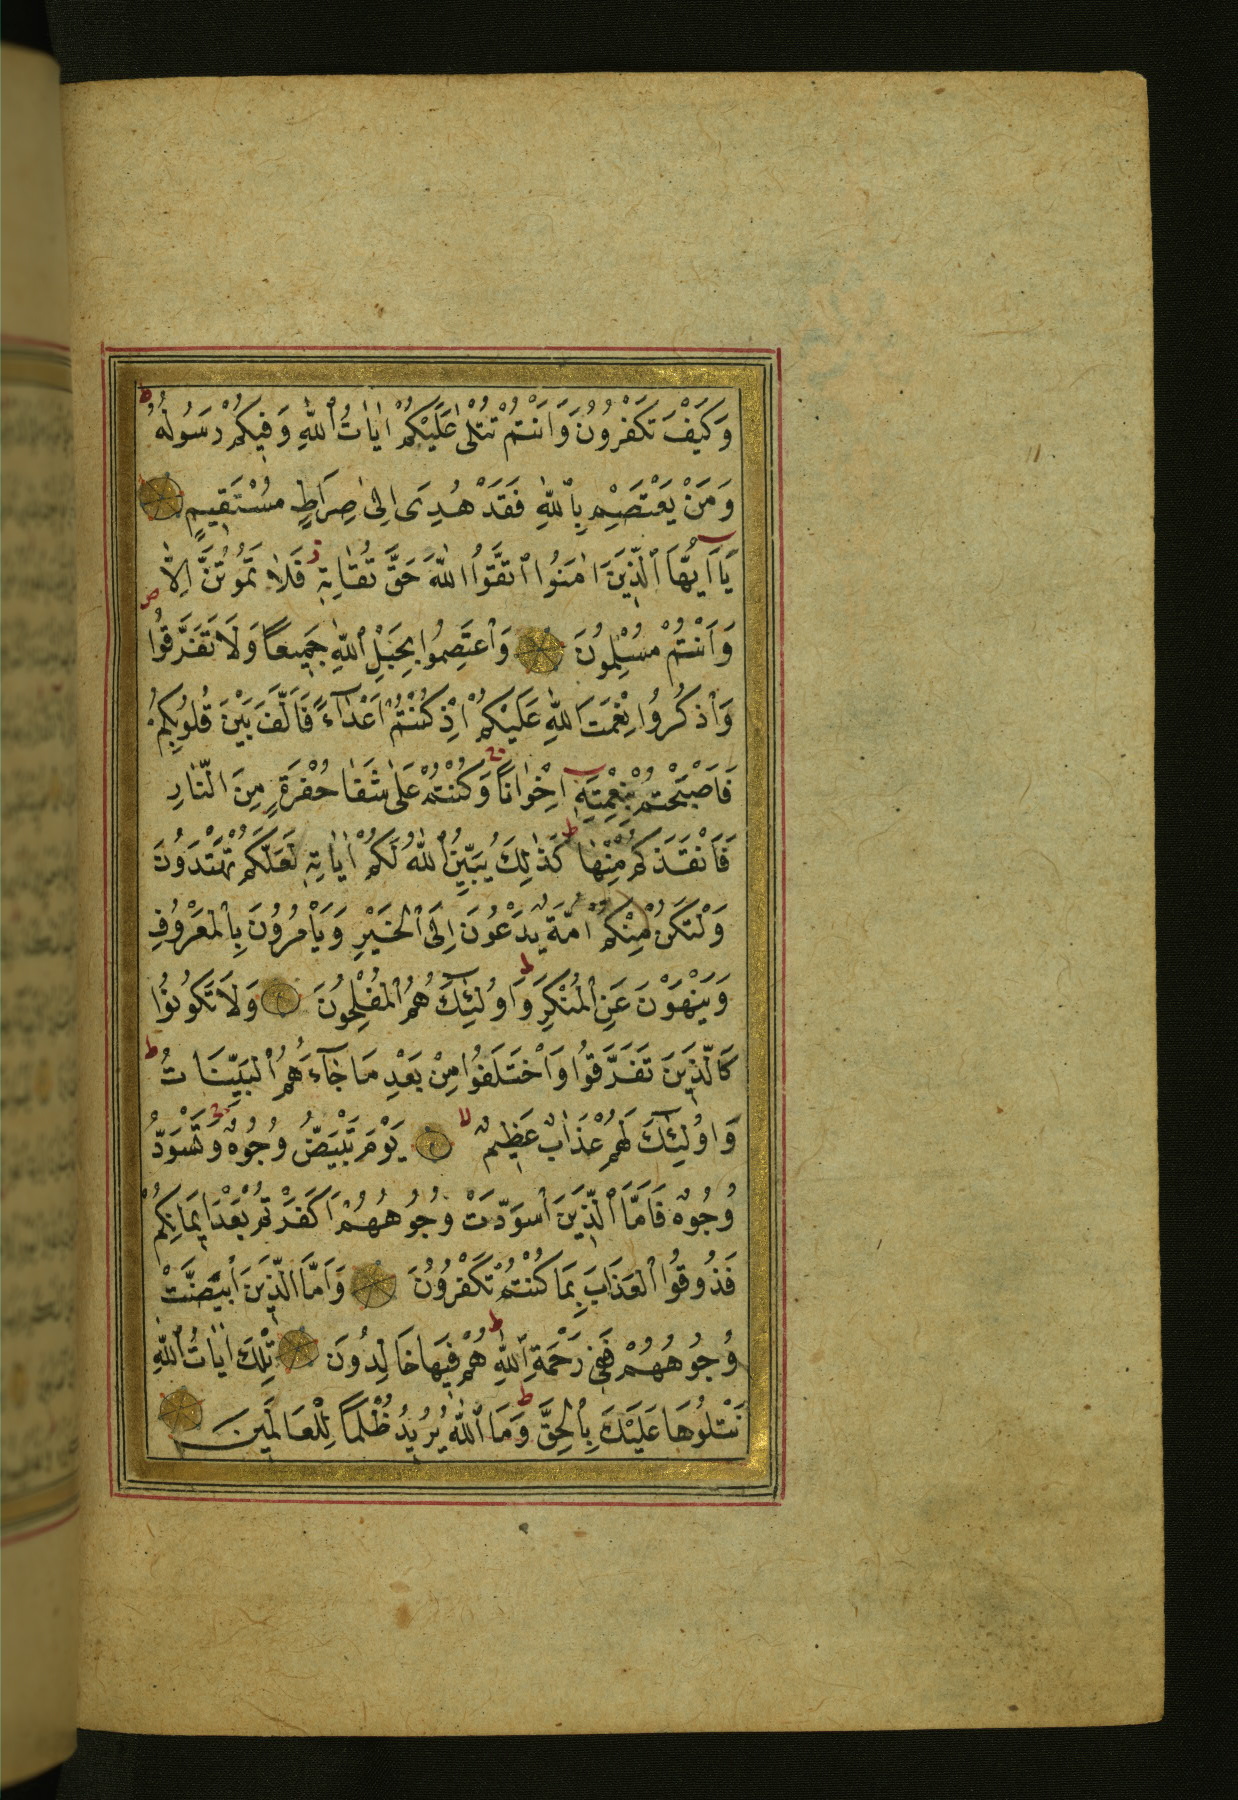 وَكَيْفَ تَكْفُرُونَ وَاَنْتُمْ تُتْلٰى عَلَيْكُمْ اٰيَاتُ اللّٰهِ وَفِيكُمْ رَسُولُهُ ط
وَمَنْ يَعْتَصِمْ بِاللّٰهِ فَقَدْ هُدِىَ اِلٰى صِرَاطٍ مُسْتَقِيمٍ
يَٓا اَيُّهَا الَّذِينَ اٰمَنُوا اتَّقُوا اللّٰهَ حَقَّ تُقَاتِهِ ز فَلَا تَمُوتُنَّ اِلَّا ص
وَاَنْتُمْ مُسْلِمُونَ وَاعْتَصِمُوا بِحَبْلِ اللّٰهِ جَمِيعًا وَلَا تَفَرَّقُوا
وَاذْكُرُوا نِعْمَتَ اللّٰهِ عَلَيْكُمْ اِذْ كُنْتُمْ اَعْدَٓاءً فَاَلَّفَ بَيْنَ قُلُوبِكُمْ
فَاَصْبَحْتُمْ بِنِعْمَتِهِ اِخْوَانًا ج وَكُنْتُمْ عَلٰى شَفَا حُفْرَةٍ مِنَ النَّارِ
فَاَنْقَذَكُمْ مِنْهَا ط كَذٰلِكَ يُبَيِّنُ اللّٰهُ لَكُمْ اٰيَاتِهِ لَعَلَّكُمْ تَهْتَدُونَ
وَلْتَكُنْ مِنْكُمْ اُمَّةٌ يَدْعُونَ اِلَى الْخَيْرِ وَيَاْمُرُونَ بِالْمَعْرُوفِ
وَيَنْهَوْنَ عَنِ الْمُنْكَرِ ط وَاُولٰٓئِكَ هُمُ الْمُفْلِحُونَ وَلَا تَكُونُوا
كَالَّذِينَ تَفَرَّقُوا وَاخْتَلَفُوا مِنْ بَعْدِ مَا جَٓاءَهُمُ الْبَيِّنَاتُ ط
وَاُولٰٓئِكَ لَهُمْ عَذَابٌ عَظِيمٌ لا يَوْمَ تَبْيَضُّ وُجُوهٌ وَتَسْوَدُّ ج
وُجُوهٌ فَاَمَّا الَّذِينَ اسْوَدَّتْ وُجُوهُهُمْ اَكَفَرْتُمْ بَعْدَ اِيمَانِكُمْ
فَذُوقُوا الْعَذَابَ بِمَا كُنْتُمْ تَكْفُرُونَ وَاَمَّا الَّذِينَ ابْيَضَّتْ
وُجُوهُهُمْ فَفِى رَحْمَةِ اللّٰهِ ط هُمْ فِيهَا خَالِدُونَ تِلْكَ اٰيَاتُ اللّٰهِ
نَتْلُوهَا عَلَيْكَ بِالْحَقِّ ط وَمَا اللّٰهُ يُرِيدُ ظُلْمًا لِلْعَالَمِينَ